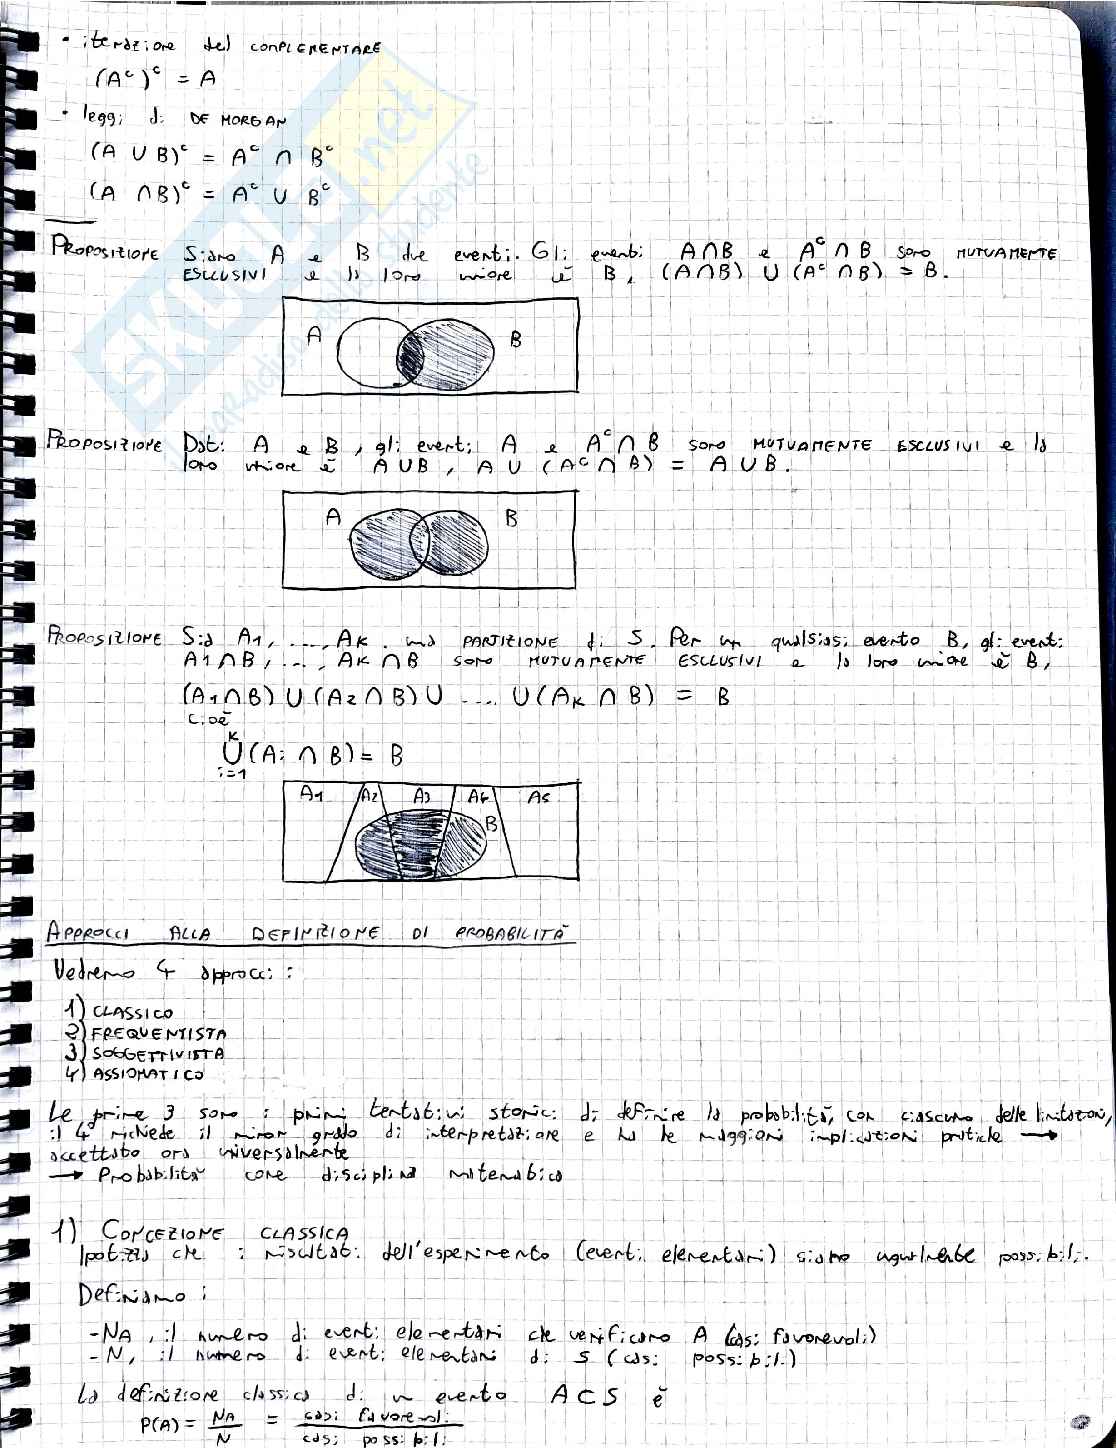 • iterazione del COMPLEMENTARE
(Aᶜ)ᶜ = A
• leggi di DE MORGAN
(A ∪ B)ᶜ = Aᶜ ∩ Bᶜ
(A ∩ B)ᶜ = Aᶜ ∪ Bᶜ
PROPOSIZIONE Siano A e B due eventi. Gli eventi A∩B e Aᶜ∩B sono MUTUAMENTE
ESCLUSIVI e la loro unione è B, (A∩B) ∪ (Aᶜ∩B) = B.
A B
PROPOSIZIONE Dati A e B, gli eventi A e Aᶜ∩B sono MUTUAMENTE ESCLUSIVI e la
loro unione è A∪B, A ∪ (Aᶜ∩B) = A∪B.
A B
PROPOSIZIONE Sia A1, ...., AK una PARTIZIONE di S. Per un qualsiasi evento B, gli eventi
A1∩B, ..., AK∩B sono MUTUAMENTE ESCLUSIVI e la loro unione è B,
(A1∩B) ∪ (A2∩B) ∪ .... ∪ (AK∩B) = B
cioè
K
∪ (Ai ∩ B) = B
i=1
A1 A2 A3 A4 A5
B
APPROCCI ALLA DEFINIZIONE DI PROBABILITÀ
Vedremo 4 approcci:
1) CLASSICO
2) FREQUENTISTA
3) SOGGETTIVISTA
4) ASSIOMATICO
Le prime 3 sono i primi tentativi storici di definire la probabilità, con ciascuno delle limitazioni,
il 4° richiede il minor grado di interpretazione e ha le maggiori implicazioni pratiche →
accettato ora universalmente
→ Probabilità come disciplina matematica
1) CONCEZIONE CLASSICA
Ipotizza che i risultati dell'esperimento (eventi elementari) siano ugualmente possibili.
Definiamo:
- NA, il numero di eventi elementari che verificano A (casi favorevoli)
- N, il numero di eventi elementari di S (casi possibili)
La definizione classica di un evento A⊂S è
P(A) = NA/N = casi favorevoli/casi possibili
SKUOLA.net